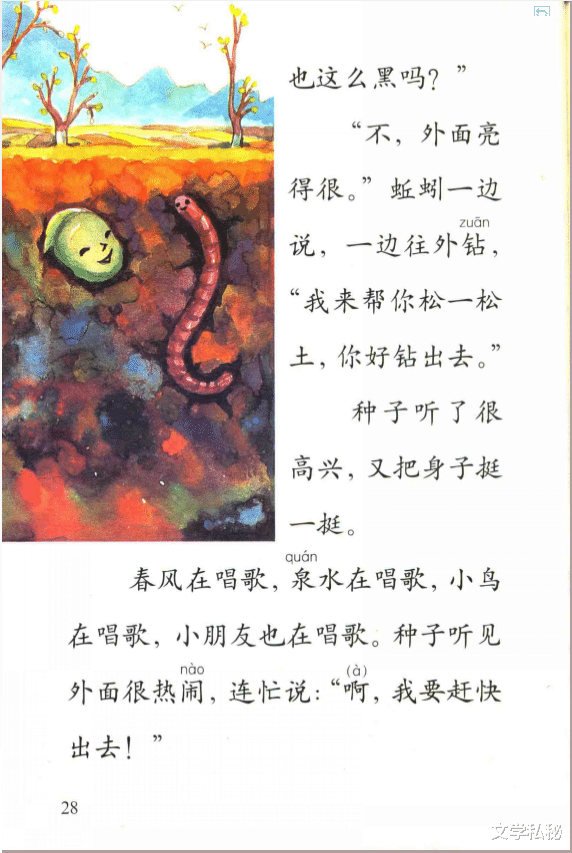 也这么黑吗？”
“不，外面亮
得很。”蚯蚓一边
zuān
说，一边往外钻，
“我来帮你松一松
土，你好钻出去。”
种子听了很
高兴，又把身子挺
一挺。
quán
春风在唱歌，泉水在唱歌，小鸟
在唱歌，小朋友也在唱歌。种子听见
nào (à)
外面很热闹，连忙说：“啊，我要赶快
出去！”
28
文学私秘